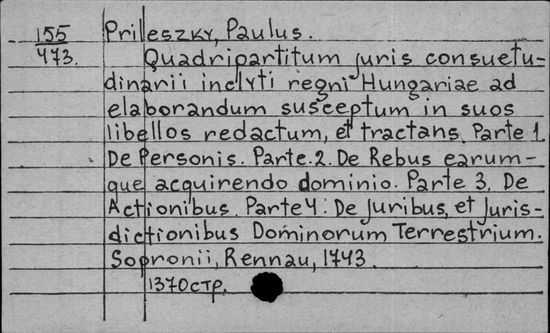 155 Prileszky, Paulus.
473. Quadripartitum juris consuetu-
dinarii inclyti regni Hungariae ad
elaborandum susceptum in suos
libellos redactum, et tractans. Parte 1.
De Personis. Parte.2. De Rebus earum-
que acquirendo dominio. Parte 3. De
Actionibus. Parte 4: De Juribus, et Juris-
dictionibus Dominorum Terrestrium.
Sopronii, Rennau, 1743.
1370стр.